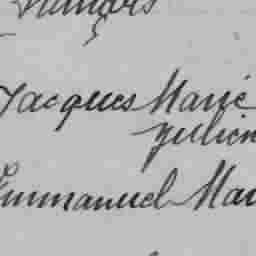 Jacques Marie
Julien
Emmanuel Mar